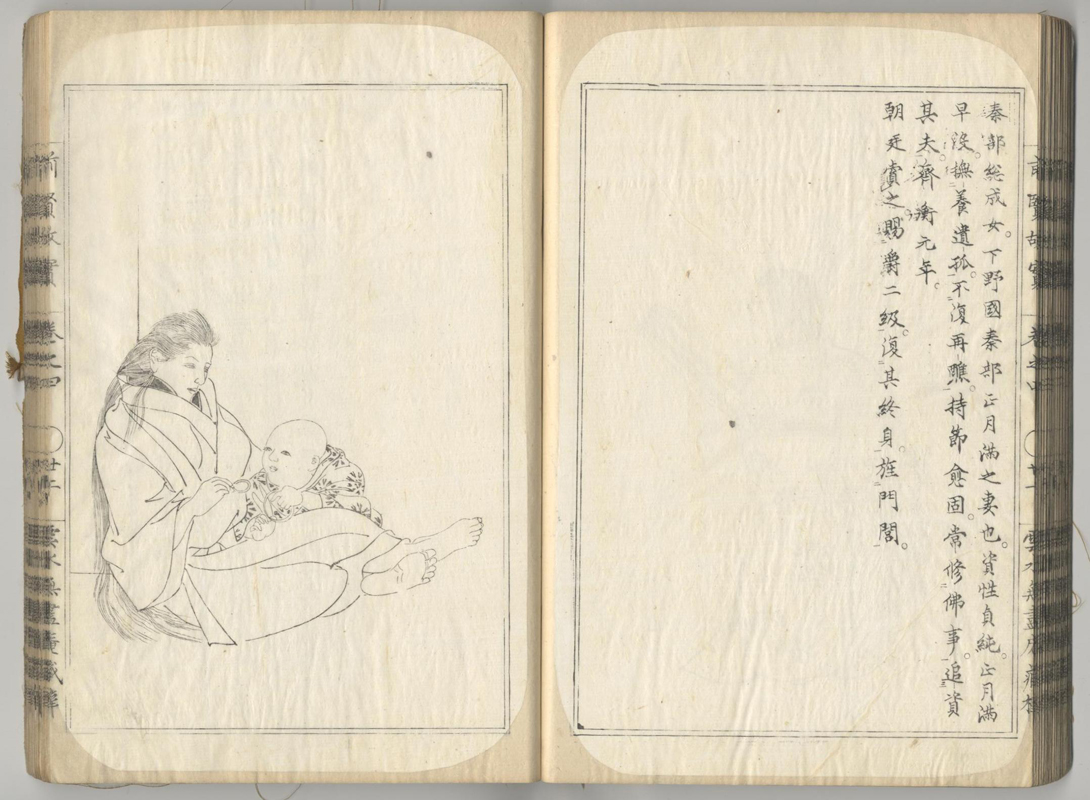 秦部総成女。下野國秦部正月満之妻也。資性貞純。正月満
早没。撫養遺孤。不復再醮。持節愈固。常修佛事。追資
其夫。齊衡元年。
朝廷賞之。賜爵二級。復其終身。旌門閭。
前賢故實
卷之四